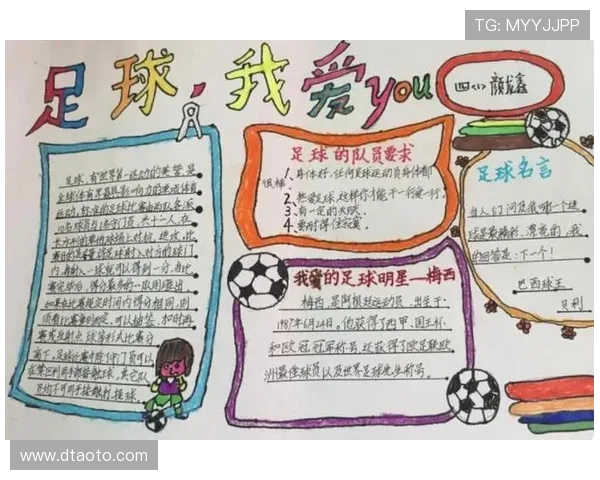 TG: MYYJJPP
足球，我爱you
四〈1〉颜鑫
足球，有世界第一运动的美誉，是
全球体育界最具影响力的单项体育
运动，标准的足球比赛由两队各派
10名球员与1名守门员，共十二人，在
长方形的草地球场上对抗，进攻，比
赛目的是尽量将足球射入对方的球门
内，每射入一球就可以得到一分，当比
赛完毕后，得分最多的一队则胜出，
如果在比赛规定时间内得分相同，则
须看比赛章则而定，可以抽签，加时再
赛或互射点球等形式比赛分
高下，足球比赛中除了守门员可以
在禁区利用手部接触足球，其它队
员均不可用手接触打足球。
足球的队员要求
1、身体好，任何足球运动员身体都
很棒。
2、热爱足球，这样你才能干一行爱一行。
3、有一定的天赋。
4、要耐得住寂寞。
我爱的足球明星—梅西
梅西，是阿根廷运动员，出生于
1987年6月24日，他获得了西甲、国王杯
和欧冠冠军称号，还获得了欧足联欧
洲最佳球员以及世界足球先生称号。
足球名言
当人们问及我哪一个进
球是最精彩、漂亮的，我
的回答是：下一个！
巴西球王
贝利
www.dtaoto.com